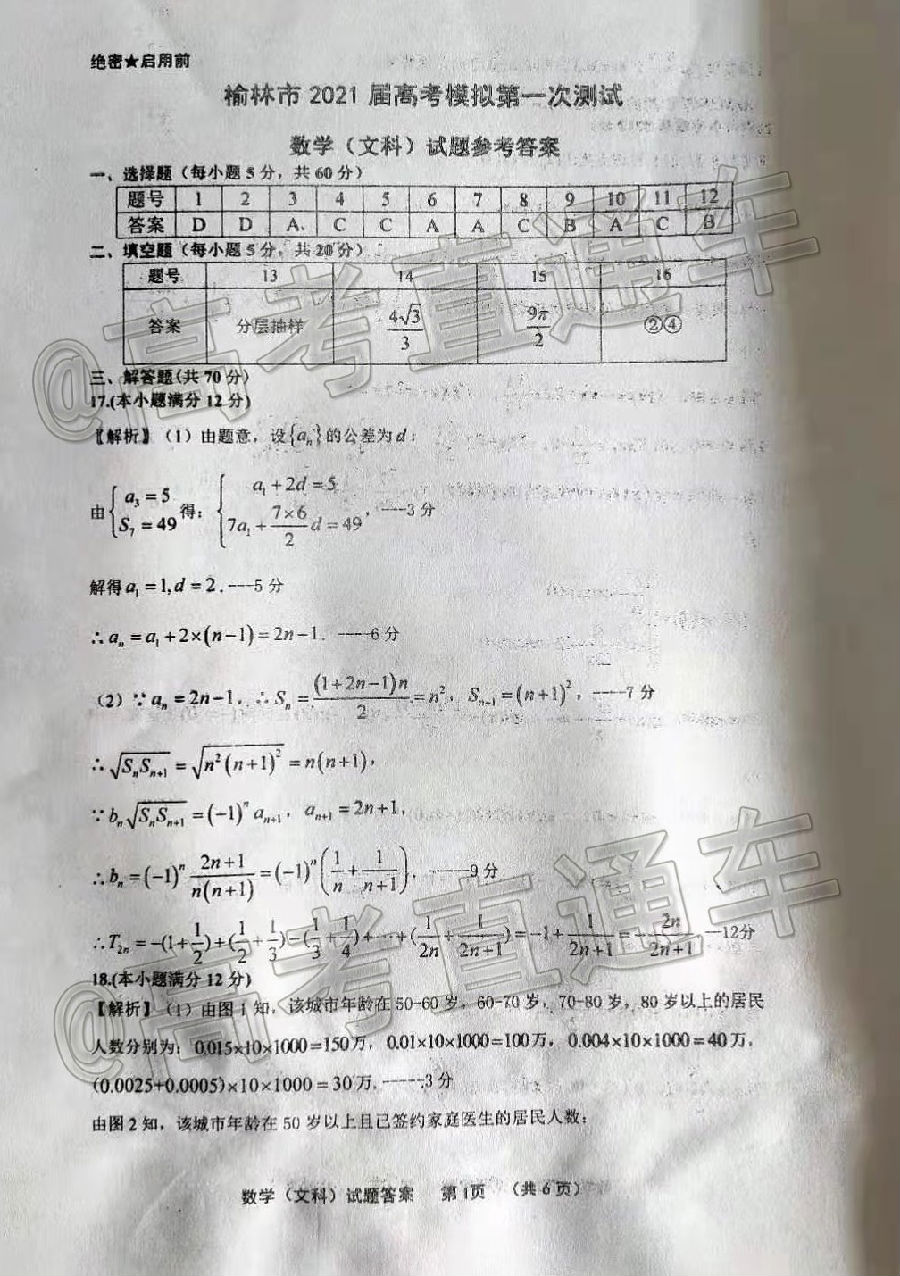 绝密★启用前
榆林市 2021 届高考模拟第一次测试
数学（文科）试题参考答案
一、选择题（每小题 5 分，共 60 分）
题号 1 2 3 4 5 6 7 8 9 10 11 12
答案 D D A C C A A C B A C B
二、填空题（每小题 5 分，共 20 分）
题号 13 14 15 16
答案 分层抽样 4√3/3 9π/2 ②④
三、解答题(共 70 分)
17.(本小题满分 12 分)
【解析】（1）由题意，设{aₙ}的公差为 d：
由{a₃=5, S₇=49 得：{a₁+2d=5, 7a₁+(7×6/2)d=49，----3 分
解得 a₁=1,d=2.----5 分
∴aₙ=a₁+2×(n-1)=2n-1. ----6 分
（2）∵aₙ=2n-1，∴Sₙ=(1+2n-1)n/2=n²，Sₙ₊₁=(n+1)²，----7 分
∴√(SₙSₙ₊₁)=√(n²(n+1)²)=n(n+1)，
∵bₙ√(SₙSₙ₊₁)=(-1)ⁿaₙ₊₁，aₙ₊₁=2n+1，
∴bₙ=(-1)ⁿ(2n+1)/(n(n+1))=(-1)ⁿ(1/n+1/(n+1))，----9 分
∴T₂ₙ=-(1+1/2)+(1/2+1/3)-(1/3+1/4)+…+(1/2n+1/(2n+1))=-1+1/(2n+1)=-2n/(2n+1)—12分
18.(本小题满分 12 分)
【解析】（1）由图 1 知，该城市年龄在 50-60 岁，60-70 岁，70-80 岁，80 岁以上的居民
人数分别为：0.015×10×1000=150万，0.01×10×1000=100万，0.004×10×1000=40万，
(0.0025+0.0005)×10×1000=30万，-----3 分
由图 2 知，该城市年龄在 50 岁以上且已签约家庭医生的居民人数：
数学（文科）试题答案 第 1页 （共 6 页）
@高考直通车
@高考直通车